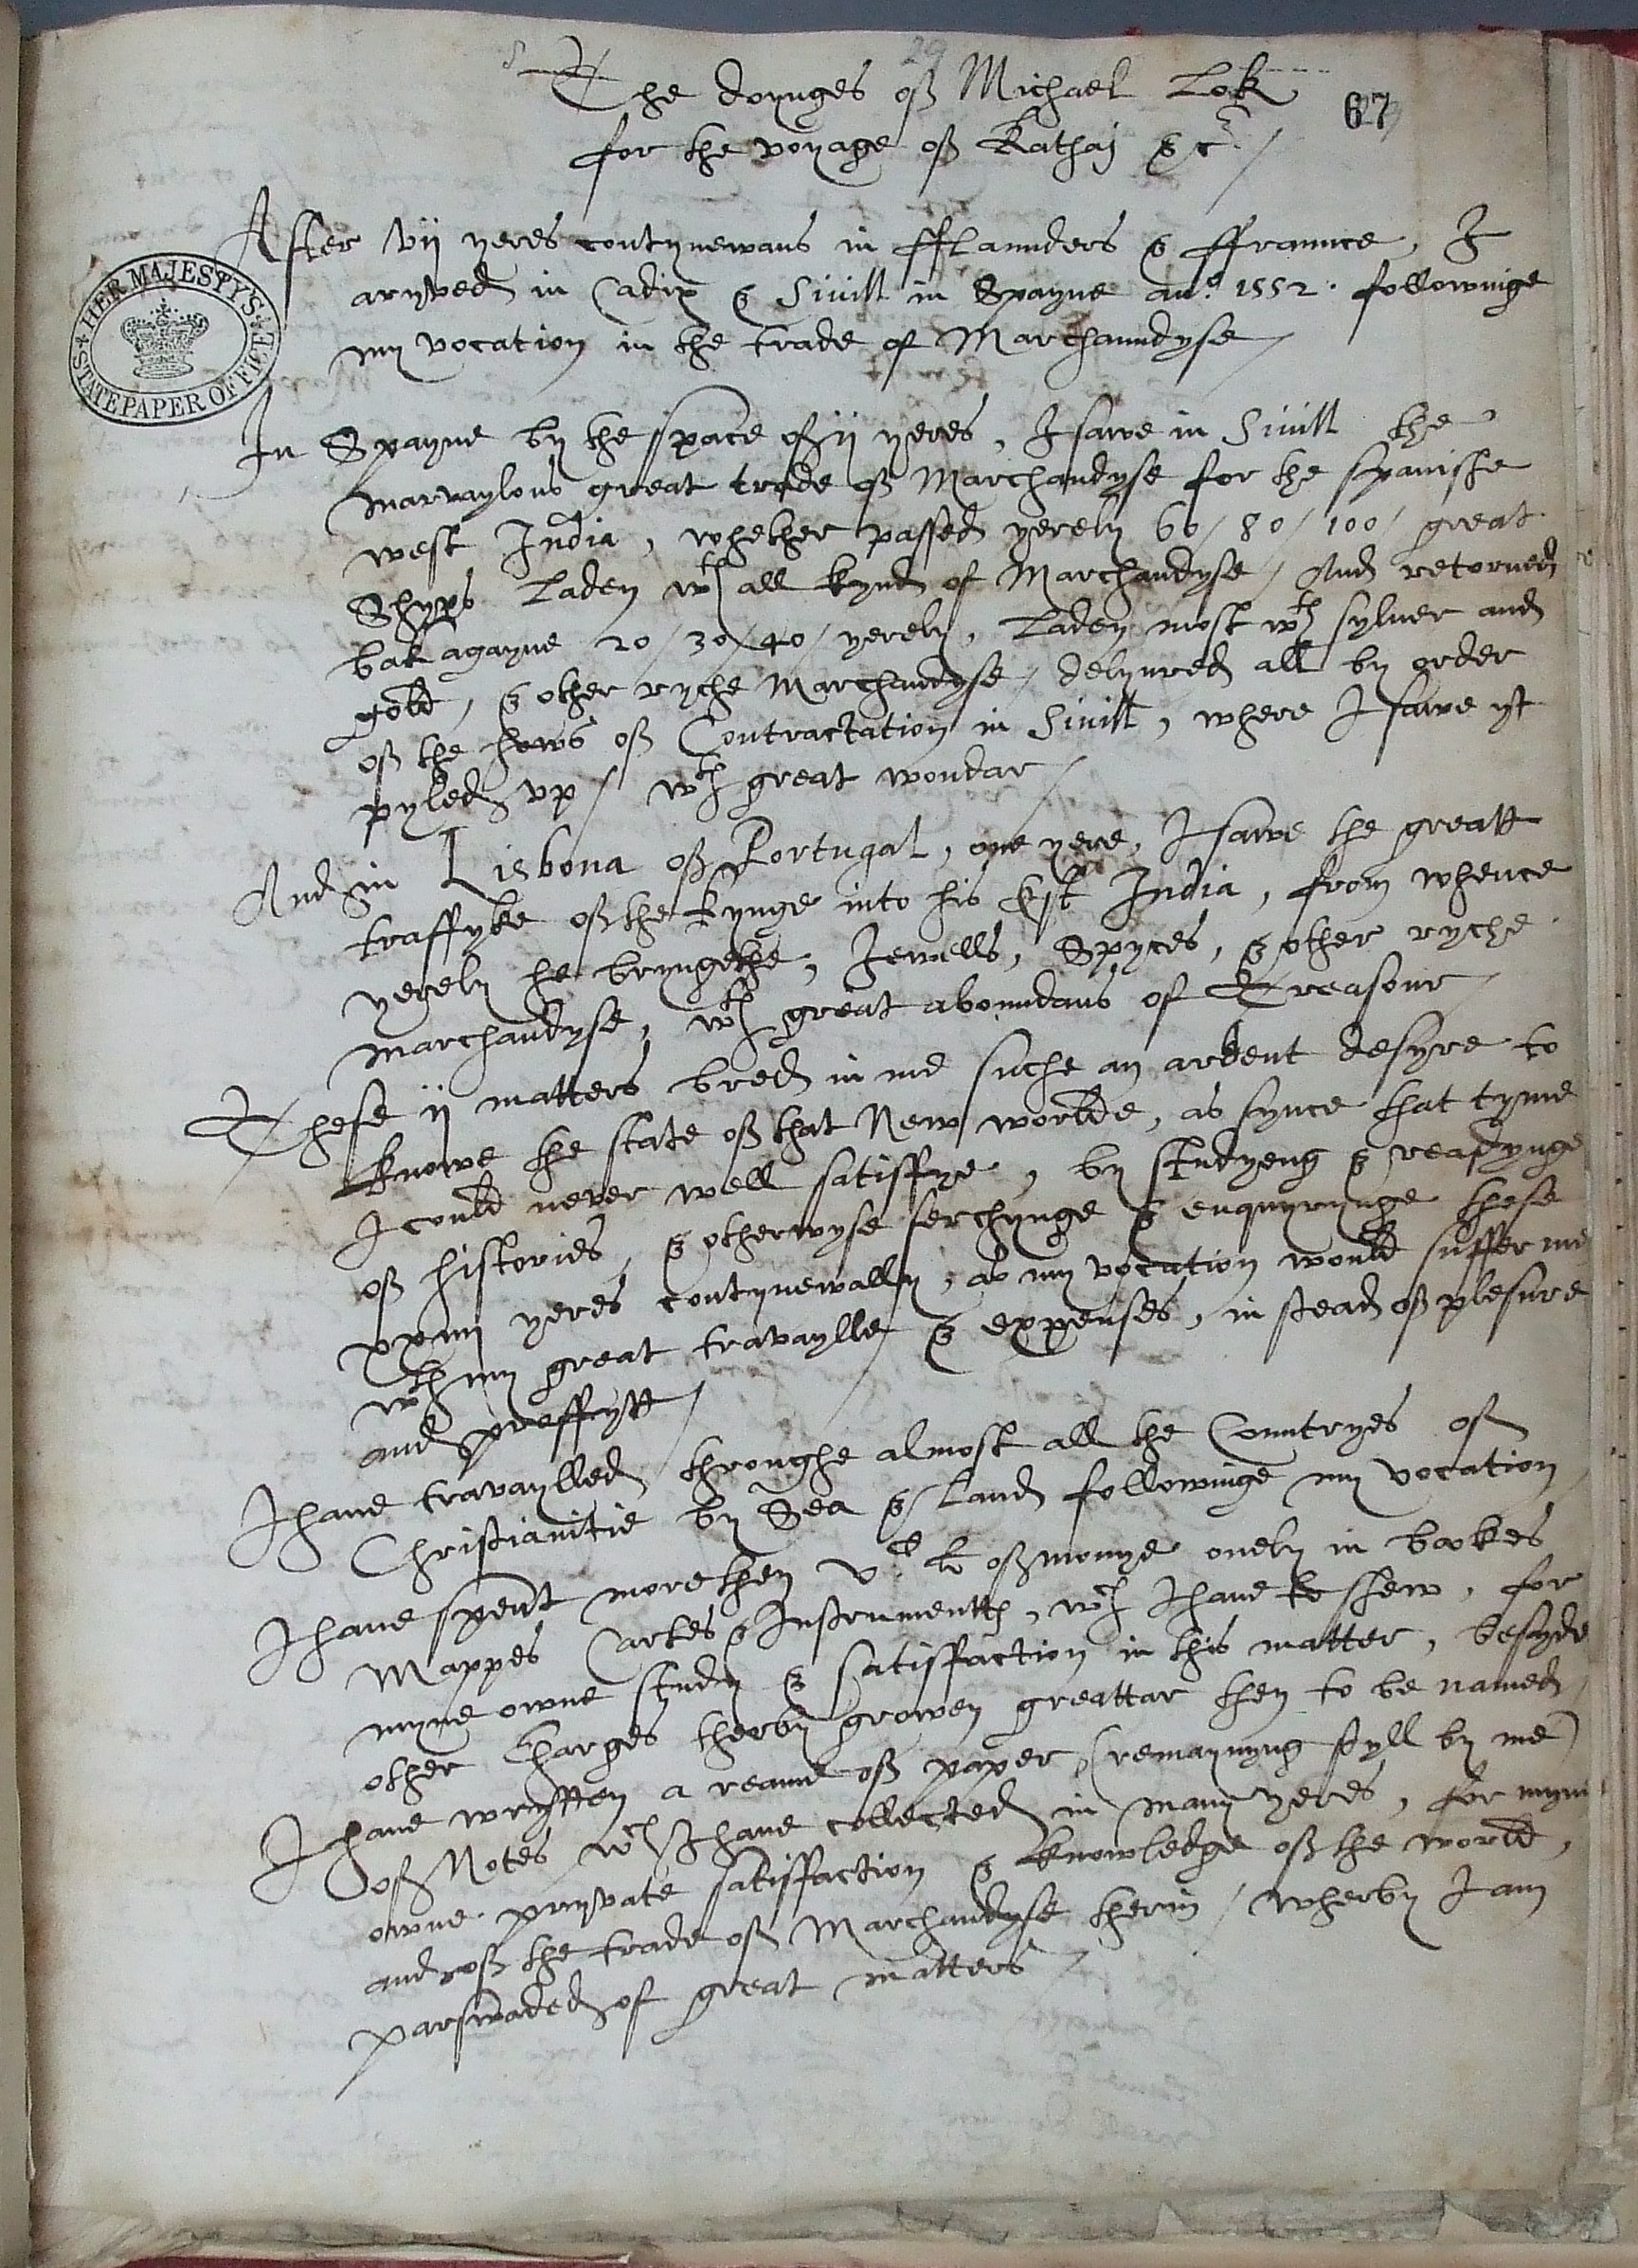 29
The doynges of Michael Lok
67
for the voyage of Kathaj &c /
After vij yeres contynewans in fflaunders & ffraunce, I
aryved in Cadix & Sivill in Spayne an.o 1552. followinge
my vocation in the trade of Marchaundyse /
HER MAJESTY'S STATE PAPER OFFICE
In Spayne by the space of ij yeres, I sawe in Sivill the
marvaylous great trade of Marchandyse for the spanishe
west India, whether passed yerely 60 / 80 / 100 / great
Shyps laden wth all kynd of Marchandyse / And retorned
bak agayne 20 / 30 / 40 / yerely, laden most wth sylver and
gold, & other ryche Marchandyse / delyvred all by order
of the hows of Contractation in Sivill, where I sawe yt
pyled vp / wth great wondar /
And in Lisbona of Portugal, one yere, I sawe the greatt
traffyke of the kynge into his Est India, from whence
yerely he bryngethe, Jewells, Spyces, & other ryche
marchandyse, wth great aboundans of Treasour /
These ij matters bred in me suche an ardent desyre to
knowe the state of that New worlde, as synce that tyme
I could never well satisffye, by studyeng & readynge
of histories, & otherwyse serchynge & enquyrynge these
xxiiij yeres contynewally, as my vocation would suffer me
wth my great travaylle & expenses, in stead of plesure
and proffytt /
I have travaylled throughe almost all the Countryes of
Christianitie by Sea & Land followinge my vocation
I have spent more then vc li of monye onely in bookes
Mappes Cartes & Instrumentes, wch I have to shew, for
myne owne study & satisffaction in this matter, besyde
other Charges therby growen greattar then to be named,
I have wrytten a reame of paper (remaynyng styll by me)
of Notes wch I have collected in many yeres, for myn
owne pryvate satisffaction & knowledge of the world,
and of the trade of Marchandyse therin / wherby I am
parswaded of great matters /